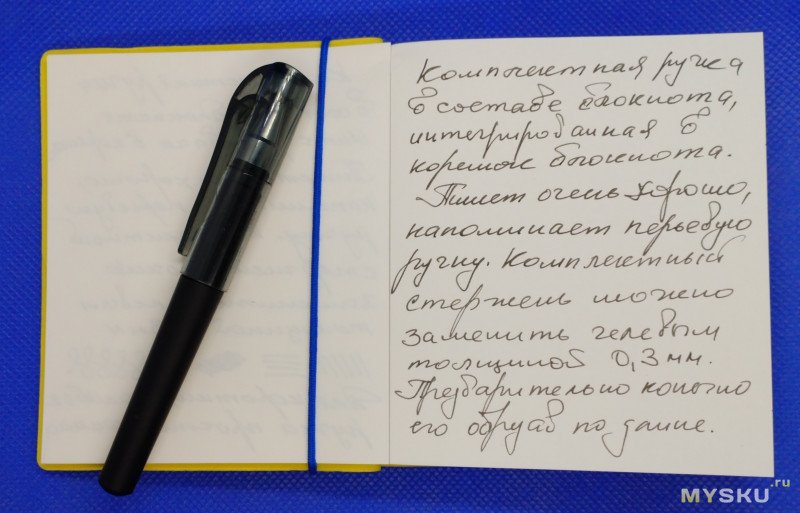 Комплектная ручка
в составе блокнота,
интегрированная в
корешок блокнота.
Пишет очень хорошо,
напоминает перьевую
ручку. Комплектный
стержень можно
заменить гелевым
толщиной 0,3 мм.
Предварительно конечно
его обрезав по длине.
MYSKU.ru